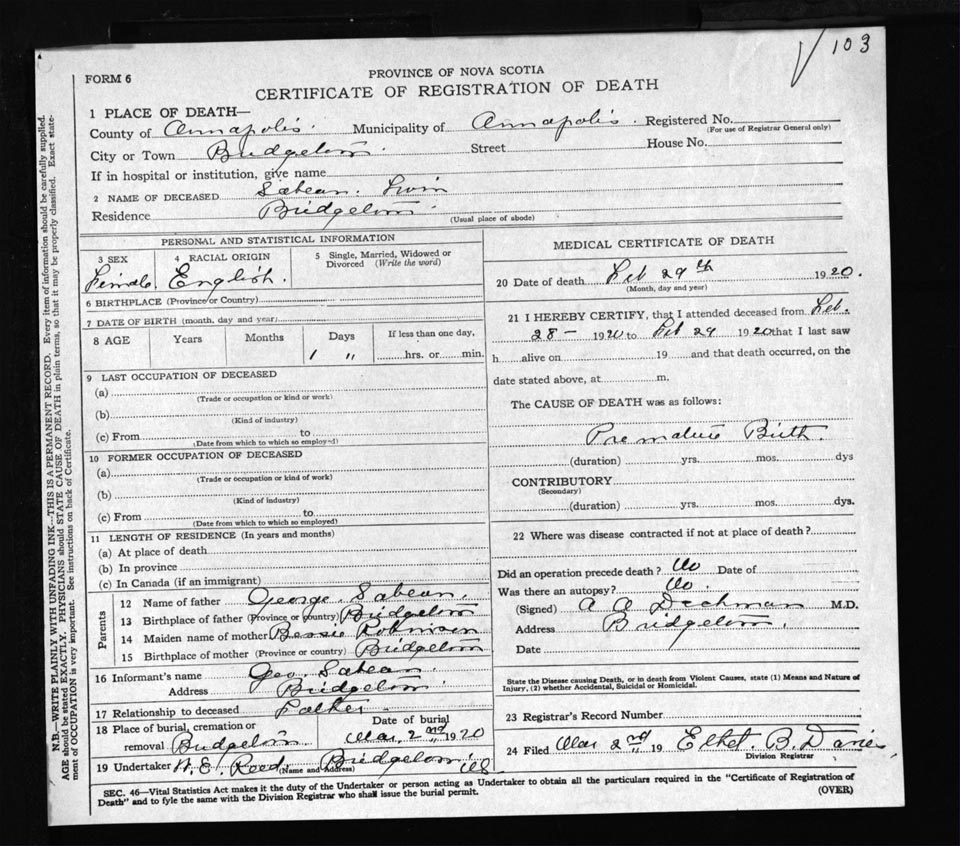 103
FORM 6
PROVINCE OF NOVA SCOTIA
CERTIFICATE OF REGISTRATION OF DEATH
1 PLACE OF DEATH—
County of Annapolis. Municipality of Annapolis. Registered No.
(For use of Registrar General only)
City or Town Bridgetown Street House No.
If in hospital or institution, give name
2 NAME OF DECEASED Sabean.
Residence Bridgetown
(Usual place of abode)
PERSONAL AND STATISTICAL INFORMATION
3 SEX 4 RACIAL ORIGIN 5 Single, Married, Widowed or Divorced (Write the word)
Female. English.
6 BIRTHPLACE (Province or Country)
7 DATE OF BIRTH (month, day and year)
8 AGE Years Months Days If less than one day,
1 " hrs. or min.
9 LAST OCCUPATION OF DECEASED
(a)
(Trade or occupation or kind or work)
(b)
(Kind of industry)
(c) From to
(Date from which to which so employed)
10 FORMER OCCUPATION OF DECEASED
(a)
(Trade or occupation or kind or work)
(b)
(Kind of industry)
(c) From to
(Date from which to which so employed)
11 LENGTH OF RESIDENCE (In years and months)
(a) At place of death
(b) In province
(c) In Canada (if an immigrant)
Parents
12 Name of father George Sabean.
13 Birthplace of father (Province or country) Bridgetown
14 Maiden name of mother Bessie Robinson
15 Birthplace of mother (Province or country) Bridgetown
16 Informant's name Geo. Sabean
Address Bridgetown
17 Relationship to deceased Father
18 Place of burial, cremation or Date of burial
removal Bridgetown Mar. 2nd 1920
19 Undertaker W. E. Reed Bridgetown
(Name and Address)
MEDICAL CERTIFICATE OF DEATH
20 Date of death Feb 29th 1920.
(Month, day and year)
21 I HEREBY CERTIFY, that I attended deceased from Feb.
28 - 1920 to Feb 29 1920 that I last saw
h alive on 19 and that death occurred, on the
date stated above, at m.
The CAUSE OF DEATH was as follows:
Premature Birth.
(duration) yrs. mos. dys
CONTRIBUTORY
(Secondary)
(duration) yrs. mos. dys.
22 Where was disease contracted if not at place of death?
Did an operation precede death? No Date of
Was there an autopsy? No.
(Signed) A A Dechman M.D.
Address Bridgetown.
Date
State the Disease causing Death, or in death from Violent Causes, state (1) Means and Nature of
Injury, (2) whether Accidental, Suicidal or Homicidal.
23 Registrar's Record Number
24 Filed Mar 2nd 19 B.
Division Registrar
SEC. 46—Vital Statistics Act makes it the duty of the Undertaker or person acting as Undertaker to obtain all the particulars required in the "Certificate of Registration of
Death" and to fyle the same with the Division Registrar who shall issue the burial permit. (OVER)
N.B.—WRITE PLAINLY WITH UNFADING INK—THIS IS A PERMANENT RECORD. Every item of information should be carefully supplied.
AGE should be stated EXACTLY. PHYSICIANS should STATE CAUSE OF DEATH in plain terms, so that it may be properly classified. Exact state-
ment of OCCUPATION is very important. See instructions on back of Certificate.